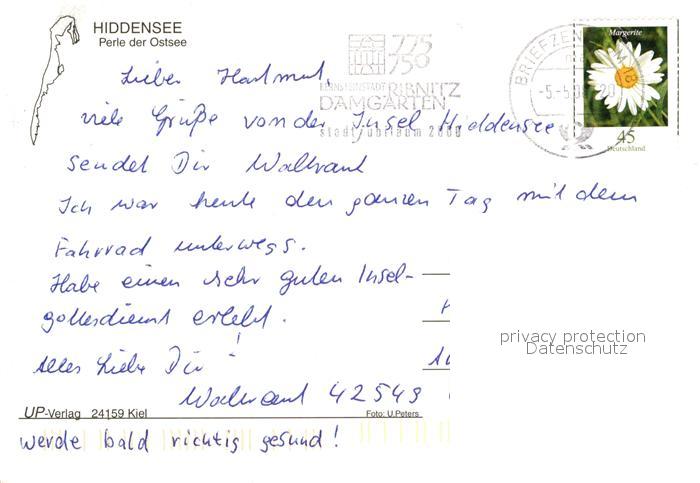 HIDDENSEE
Perle der Ostsee
Lieber Hartmut,
viele Grüße von der Insel Hiddensee
sendet Dir Waltraut
Ich war heute den ganzen Tag mit dem
Fahrrad unterwegs.
Habe einen sehr guten Insel-
gottesdienst erlebt.
Alles Liebe Dir!
Waltraut 42549
UP-Verlag 24159 Kiel
Foto: U.Peters
werde bald richtig gesund!
775
750
BERNSTEINSTADT RIBNITZ
DAMGARTEN
Stadtjubiläum
BRIEFZEN
-5.-5.
Margerite
45
Deutschland
privacy protection
Datenschutz